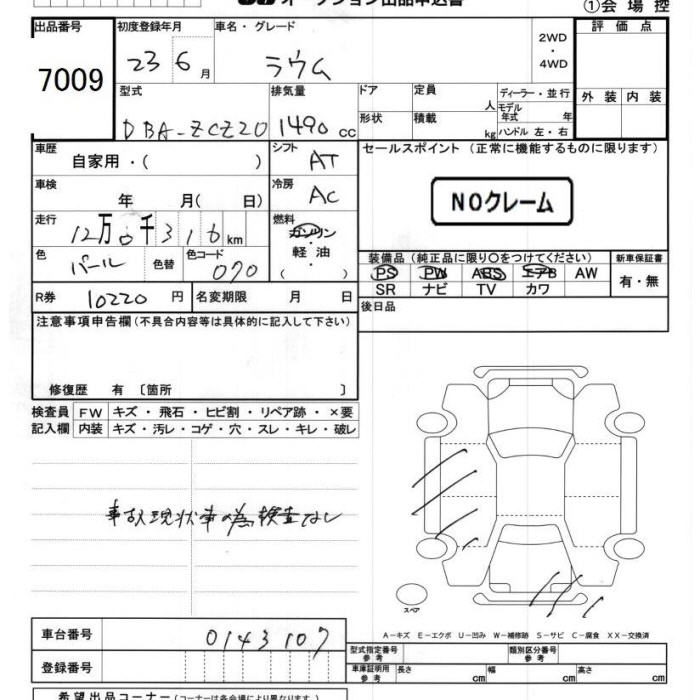 オークション出品申込書
①会場控
出品番号 初度登録年月 車名・グレード 評価点
7009 23 6月 ラウム 2WD・4WD
型式 排気量 ドア 定員 人 ディーラー・並行 外装 内装
DBA-ZCZ20 1490cc 形状 積載 kg モデル年式 年
ハンドル 左・右
車歴 シフト セールスポイント (正常に機能するものに限ります)
自家用・( ) AT
車検 年 月(日) 冷房 AC
NOクレーム
走行 12万0千316km 燃料 ガソリン・軽油・( )
色 パール 色替 色コード 070
装備品(純正品に限り○をつけてください) 新車保証書
PS PW ABS エアB AW 有・無
SR ナビ TV カワ
R券 10220円 名変期限 月 日 後日品
注意事項申告欄(不具合内容等は具体的に記入して下さい)
修復歴 有〔箇所 〕
検査員 FW キズ・飛石・ヒビ割・リペア跡・×要
記入欄 内装 キズ・汚レ・コゲ・穴・スレ・キレ・破レ
事故現状車の為検査なし
スペア
A-キズ E-エクボ U-凹み W-補修跡 S-サビ C-腐食 XX-交換済
車台番号 0143107 型式指定番号 参考 類別区分番号 参考
登録番号 車庫証明用 参考 長さ cm 幅 cm 高さ cm
希望出品コーナー(コーナーは各会場により異なります)